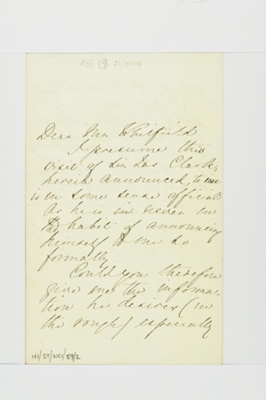 Dear Mr Whitfield
I presume this
visit of Sir Jas Clark,
herein announced, to me
is in some sense official
As he is in never in
the habit of announcing
himself to me so
formally
Could you therefore
give me the informa-
tion he desires (in
the rough) especially